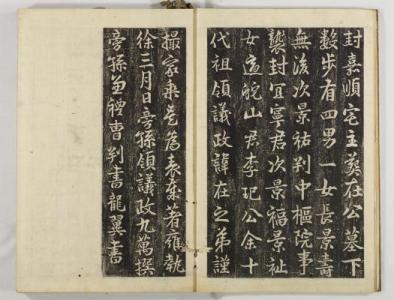 封嘉順宅主葬在公墓下
數步有四男一女長景壽
無後次景祐判中樞院事
襲封宜寧君次景福景祉
女適山君李公余十
代祖領議政諱在之弟謹
撮家乘爲表著雍執
徐三月日旁孫領議政九萬撰
旁孫兼禮曹判書龍翼書